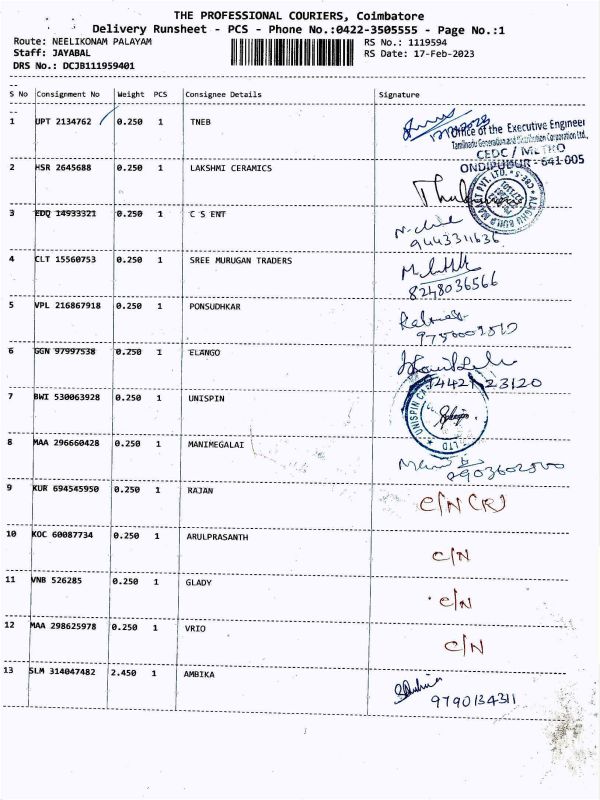 THE PROFESSIONAL COURIERS, Coimbatore
Delivery Runsheet - PCS - Phone No.:0422-3505555 - Page No.:1
Route: NEELIKONAM PALAYAM RS No.: 1119594
Staff: JAYABAL RS Date: 17-Feb-2023
DRS No.: DCJB111959401
S No Consignment No Weight PCS Consignee Details Signature
1 UPT 2134762 0.250 1 TNEB
Office of the Executive Engineer
Tamilnadu Generation and Distribution Corporation Ltd.,
CEDC / METRO
ONDIPUDUR - 641 005
2 HSR 2645688 0.250 1 LAKSHMI CERAMICS
3 EDQ 14933321 0.250 1 C S ENT
9443311636
4 CLT 15560753 0.250 1 SREE MURUGAN TRADERS
8248036566
5 VPL 216867918 0.250 1 PONSUDHKAR
6 GGN 97997538 0.250 1 ELANGO
7 BWI 530063928 0.250 1 UNISPIN
8 MAA 296660428 0.250 1 MANIMEGALAI
9 KUR 694545950 0.250 1 RAJAN C/N (R)
10 KOC 60087734 0.250 1 ARULPRASANTH C/N
11 VNB 526285 0.250 1 GLADY C/N
12 MAA 298625978 0.250 1 VRIO C/N
13 SLM 314047482 2.450 1 AMBIKA
9790134311